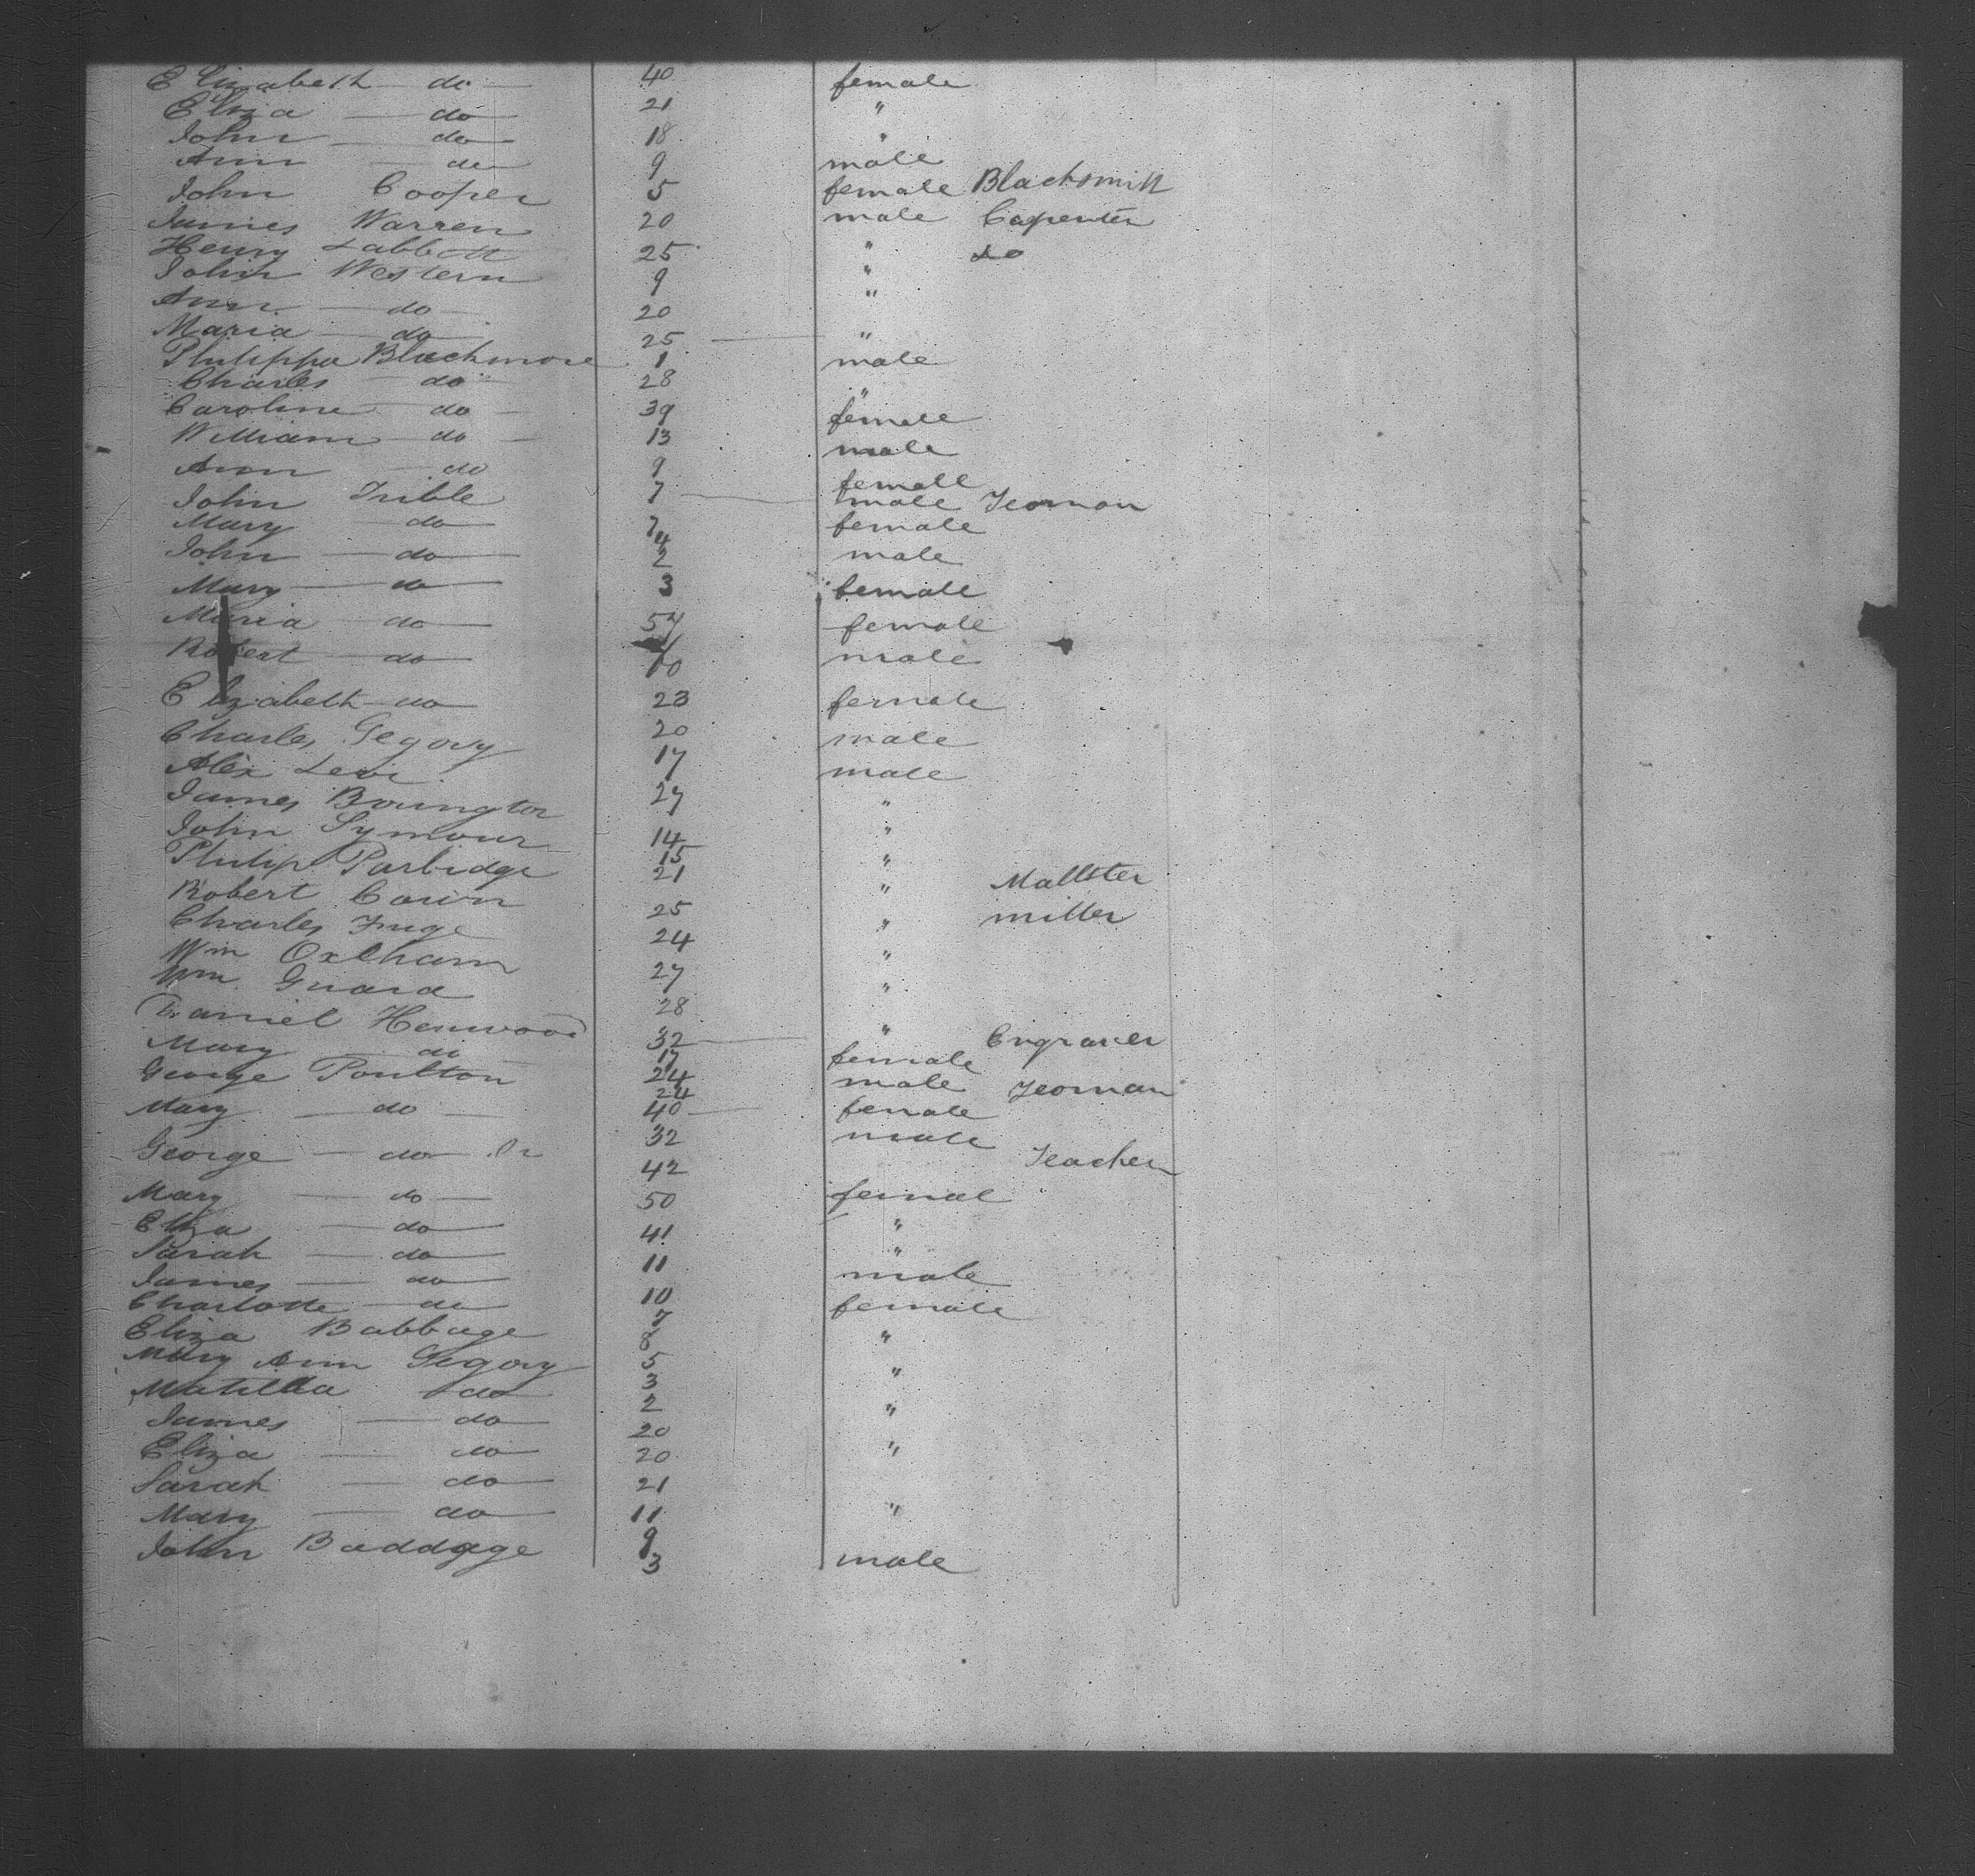 Elizabeth do 40 female
Eliza do 21 "
John do 18 "
Ann do 9 male
John Cooper 5 female Blacksmith
James Warren 20 male Capenter
Henry Labbott 25 " do
John Western 9 "
Ann do 20 "
Maria do 25 "
Philippa Blackmore 1 male
Charles do 28 "
Caroline do 39 female
William do 13 male
Ann do 9 female
John Trible 7 male Yeoman
Mary do 7 female
John do 4 male
Mary do 2 female
Maria do 3 female
Robert do male
Elizabeth do 23 female
Charles Gegory 20 male
Alex Levi 17 male
James Bovington 27 "
John Symour 14 "
Philip Parbidge 15 "
Robert Cowin 21 " Mallster
Charles Fuge 25 " miller
Wm Oxlham 24 "
Wm Guard 27 "
Daniel Henwood 28 " Engraver
Mary do 32 female
George Poulton 17 male Yeoman
Mary do 24 female
24
George do Jr 40 male Teacher
32
Mary do 42 female
Eliza do 50 "
Sarah do 41 "
James do 11 male
Charlotte do 10 female
Eliza Babbage 7 "
Mary Ann Gegory 8 "
Matilda do 5 "
James do 3 "
Eliza do 2
Sarah do 20 "
Mary do 20
21
11
John Baddage 9 male
3